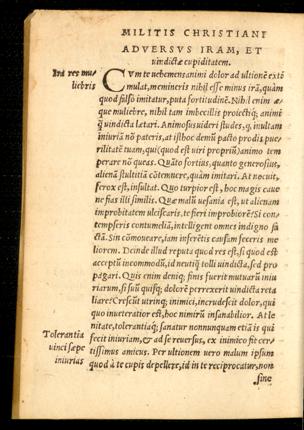 MILITIS CHRISTIANI
ADVERSVS IRAM, ET
uindictæ cupiditatem.
Ira res mu/
liebris
CVm te uehemens animi dolor ad ultionē extē
mulat, memineris nihil esse minus irā, quàm
quod falsò imitatur, puta fortitudinē. Nihil enim æ
que muliebre, nihil tam imbecillis proiectiq́; animi
q̃ uindicta lætari. Animosus uideri studes, q, inultam
iniuriā nō pateris, at isthoc demū pacto prodis pue
rilitatē tuam, qui (quod est uiri propriū) animo tem
perare nō queas. Quāto fortius, quanto generosius,
alienā stultitiā cōtemnere, quàm imitari. At nocuit,
ferox est, insultat. Quo turpior est, hoc magis caue
ne fias illi similis. Quæ malū uesania est, ut alienam
improbitatem ulciscaris, te fieri improbiorē? Si con
tempseris contumeliā, intelligent omnes indigno fa
ctā. Sin cōmoueare, iam inferētis causam feceris me
liorem. Deinde illud reputa quod res est, si quid est
acceptū incommodū, id neutiq́ tolli uindicta, sed pro
pagari. Quis enim deniq; finis fuerit mutuarū iniu
riarum, si suū quisq; dolorē perrexerit uindicta reta
liare? Crescūt utrinq; inimici, incrudescit dolor, qui
quo inueteratior est, hoc nimirū insanabilior. At le
nitate, tolerantiaq́; sanatur nonnunquam etiā is qui
fecit iniuriam, & ad se reuersus, ex inimico fit cer/
Tolerantia
uinci sæpe
iniurias
tissimus amicus. Per ultionem uero malum ipsum
quod à te cupis depellere, id in te reciprocatur, non
sine